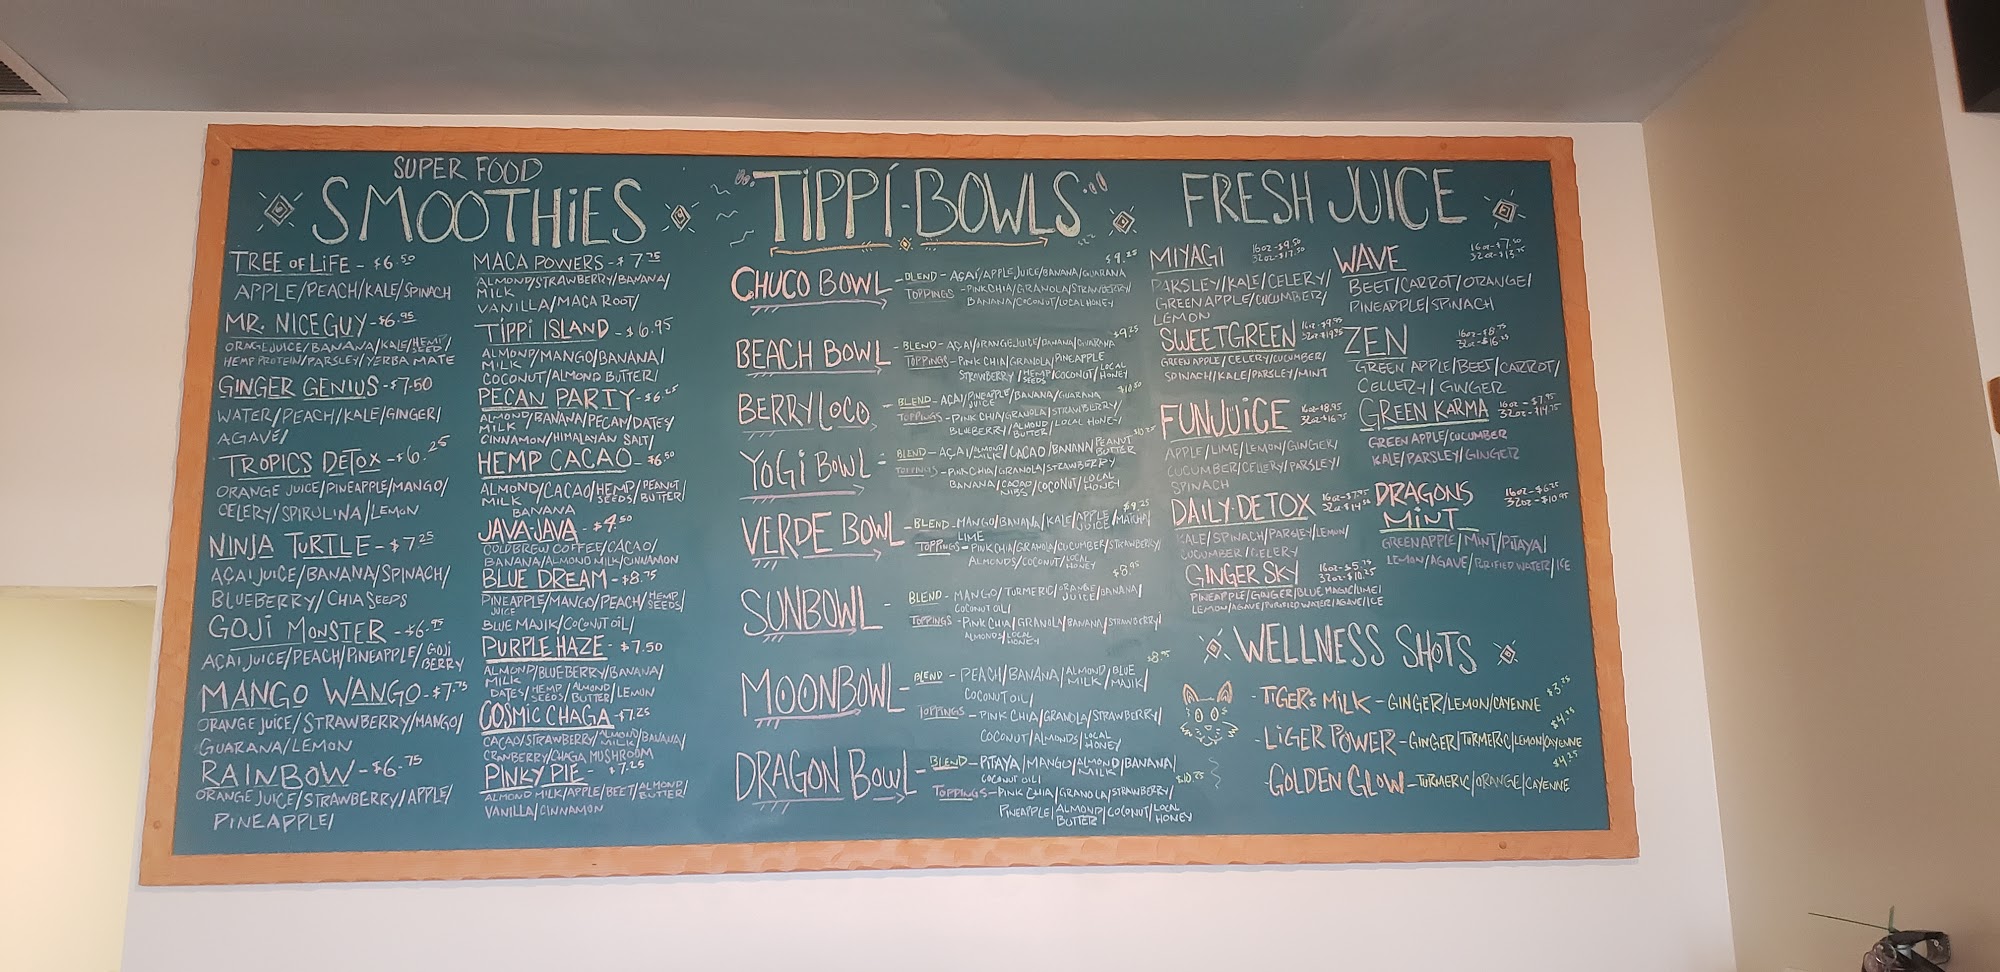 SUPER FOOD
SMOOTHIES
TREE OF LIFE - $6.50
APPLE/PEACH/KALE/SPINACH
MR. NICE GUY - $6.95
ORAGE JUICE/BANANA/KALE/HEMP SEED/
HEMP PROTEIN/PARSLEY/YERBA MATE
GINGER GENIUS - $7.50
WATER/PEACH/KALE/GINGER/
AGAVE/
TROPICS DETOX - $6.25
ORANGE JUICE/PINEAPPLE/MANGO/
CELERY/SPIRULINA/LEMON
NINJA TURTLE - $7.25
AÇAI JUICE/BANANA/SPINACH/
BLUEBERRY/CHIA SEEDS
GOJI MONSTER - $6.75
AÇAI JUICE/PEACH/PINEAPPLE/GOJI BERRY
MANGO WANGO - $7.75
ORANGE JUICE/STRAWBERRY/MANGO/
GUARANA/LEMON
RAINBOW - $6.75
ORANGE JUICE/STRAWBERRY/APPLE/
PINEAPPLE/
MACA POWERS - $7.25
ALMOND MILK/STRAWBERRY/BANANA/
VANILLA/MACA ROOT/
TIPPI ISLAND - $6.95
ALMOND MILK/MANGO/BANANA/
COCONUT/ALMOND BUTTER/
PECAN PARTY - $6.25
ALMOND MILK/BANANA/PECAN/DATES/
CINNAMON/HIMALAYAN SALT/
HEMP CACAO - $6.50
ALMOND MILK/CACAO/HEMP SEEDS/PEANUT BUTTER/
BANANA
JAVA-JAVA - $4.50
COLD BREW COFFEE/CACAO/
BANANA/ALMOND MILK/CINNAMON
BLUE DREAM - $8.75
PINEAPPLE JUICE/MANGO/PEACH/HEMP SEEDS/
BLUE MAJIK/COCONUT OIL/
PURPLE HAZE - $7.50
ALMOND MILK/BLUEBERRY/BANANA/
DATES/HEMP SEEDS/ALMOND BUTTER/LEMON
COSMIC CHAGA - $7.25
CACAO/STRAWBERRY/ALMOND MILK/BANANA/
CRANBERRY/CHAGA MUSHROOM
PINKY PIE - $7.25
ALMOND MILK/APPLE/BEET/ALMOND BUTTER/
VANILLA/CINNAMON
TIPPÍ-BOWLS
CHUCO BOWL $9.25
BLEND - AÇAI/APPLE JUICE/BANANA/GUARANA
TOPPINGS - PINK CHIA/GRANOLA/STRAWBERRY/
BANANA/COCONUT/LOCAL HONEY
BEACH BOWL $9.25
BLEND - AÇAI/ORANGE JUICE/BANANA/GUARANA
TOPPINGS - PINK CHIA/GRANOLA/PINEAPPLE
STRAWBERRY/HEMP SEEDS/COCONUT/LOCAL HONEY
BERRY LOCO $10.50
BLEND - AÇAI/PINEAPPLE JUICE/BANANA/GUARANA
TOPPINGS - PINK CHIA/GRANOLA/STRAWBERRY/
BLUEBERRY/ALMOND BUTTER/LOCAL HONEY
YOGI BOWL
BLEND - AÇAI/ALMOND MILK/CACAO/BANANN/PEANUT BUTTER
TOPPINGS - PINK CHIA/GRANOLA/STRAWBERRY
BANANA/CACAO NIBS/COCONUT/LOCAL HONEY
VERDE BOWL $9.25
BLEND - MANGO/BANANA/KALE/APPLE JUICE/MATCHA/
LIME
TOPPINGS - PINK CHIA/GRANOLA/CUCUMBER/STRAWBERRY/
ALMONDS/COCONUT/LOCAL HONEY
SUNBOWL $8.95
BLEND - MANGO/TURMERIC/ORANGE JUICE/BANANA/
COCONUT OIL/
TOPPINGS - PINK CHIA/GRANOLA/BANANA/STRAWBERRY/
ALMONDS/LOCAL HONEY
MOONBOWL $8.95
BLEND - PEACH/BANANA/ALMOND MILK/BLUE MAJIK/
COCONUT OIL/
TOPPINGS - PINK CHIA/GRANOLA/STRAWBERRY/
COCONUT/ALMONDS/LOCAL HONEY
DRAGON BOWL $10.25
BLEND - PITAYA/MANGO/ALMOND MILK/BANANA/
COCONUT OIL/
TOPPINGS - PINK CHIA/GRANOLA/STRAWBERRY/
PINEAPPLE/ALMOND BUTTER/COCONUT/LOCAL HONEY
FRESH JUICE
MIYAGI 16oz-$9.50
32oz-$17.50
PARSLEY/KALE/CELERY/
GREEN APPLE/CUCUMBER/
LEMON
SWEETGREEN 16oz-$9.95
PINEAPPLE/CELERY/CUCUMBER/
SPINACH/KALE/PARSLEY/MINT
FUNJUICE 16oz-$8.95
32oz-$16.75
APPLE/LIME/LEMON/GINGER/
CUCUMBER/CELLERY/PARSLEY/
SPINACH
DAILY-DETOX 16oz-$7.95
KALE/SPINACH/PARSLEY/LEMON/
CUCUMBER/CELERY
GINGER SKY 16oz-$5.75
32oz-$10.25
PINEAPPLE/GINGER/BLUE MAGIC/LIME/
LEMON/AGAVE/PURIFIED WATER/AGAVE/ICE
WAVE 16oz-$7.50
32oz-$13.75
BEET/CARROT/ORANGE/
PINEAPPLE/SPINACH
ZEN 16oz-$8.75
GREEN APPLE/BEET/CARROT/
CELLERY/GINGER
GREEN KARMA 16oz-$7.95
32oz-$14.75
GREEN APPLE/CUCUMBER
KALE/PARSLEY/GINGER
DRAGONS
MINT 16oz-$6.75
32oz-$10.95
GREEN APPLE/MINT/PITAYA/
LEMON/AGAVE/PURIFIED WATER/ICE
WELLNESS SHOTS
- TIGERS MILK - GINGER/LEMON/CAYENNE $3.75
- LIGER POWER - GINGER/TURMERIC/LEMON/CAYENNE $4.25
- GOLDEN GLOW - TURMERIC/ORANGE/CAYENNE $4.25